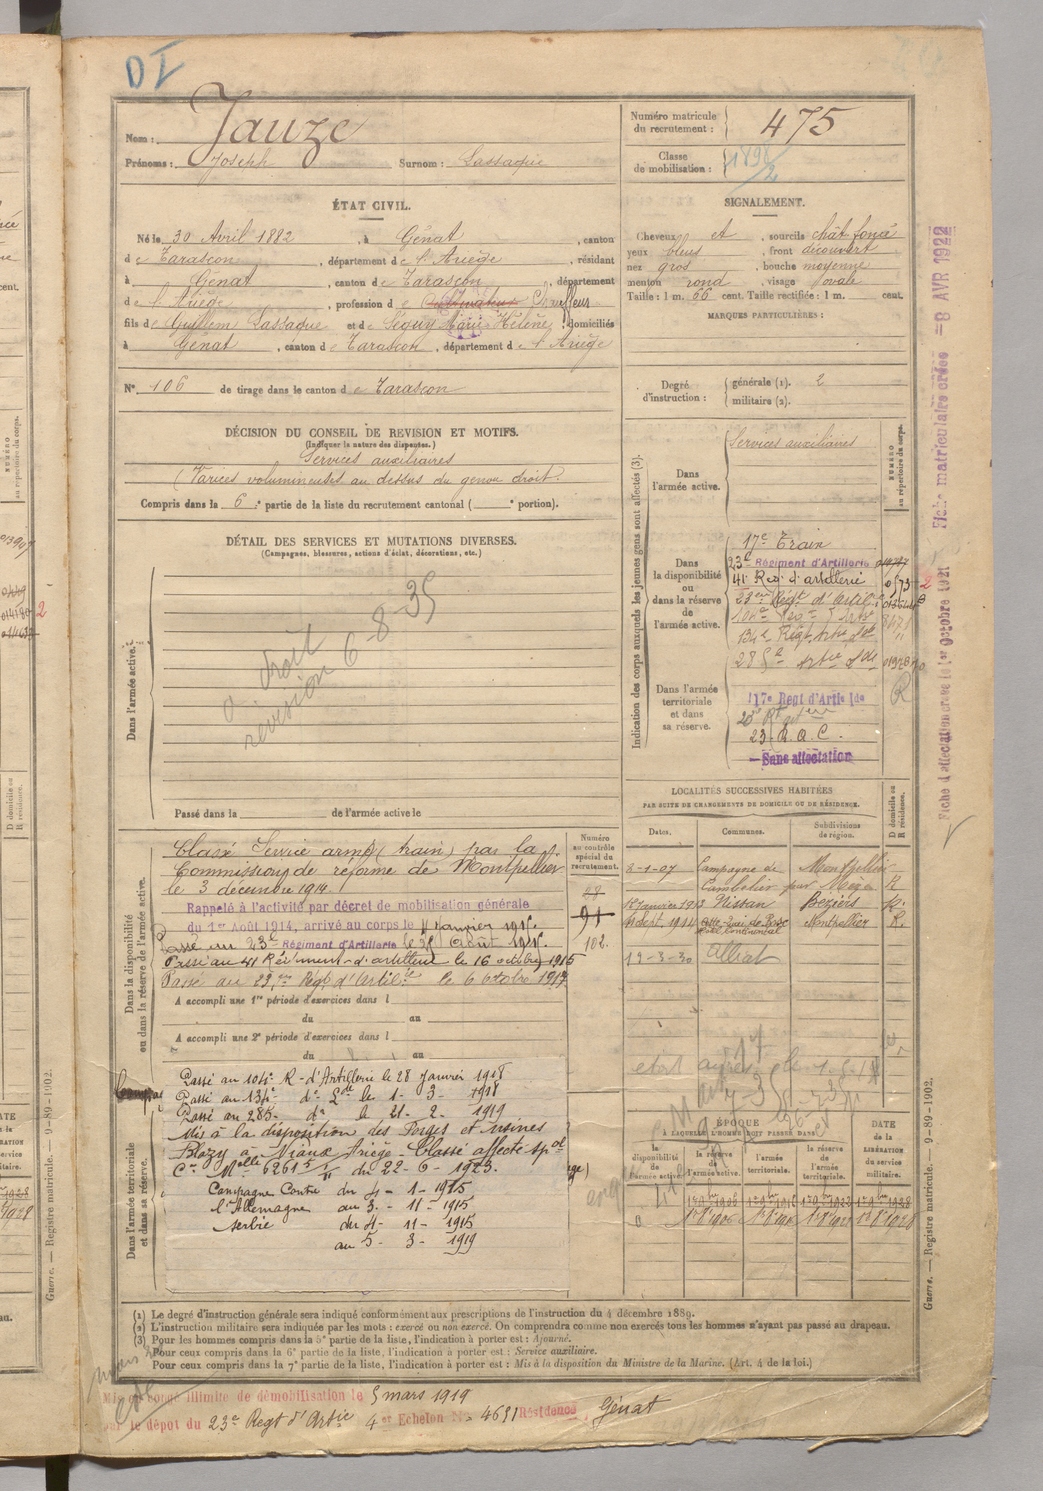 DI
Nom : Jauze
Prénoms : Joseph Surnom : Lassaque
Numéro matricule du recrutement : 475
Classe de mobilisation : 1898/2
ÉTAT CIVIL.
Né le 30 Avril 1882, à Génat, canton
de Tarascon, département de l'Ariège, résidant
à Génat, canton de Tarascon, département
de l'Ariège, profession de Cultivateur Chauffeur
fils de Guillem Lassaque et de Séguy Marie Hélène, domiciliés
à Génat, canton de Tarascon, département de l'Ariège
N° 106 de tirage dans le canton de Tarascon
SIGNALEMENT.
Cheveux et, sourcils chât. foncé
yeux bleus, front découvert
nez gros, bouche moyenne
menton rond, visage ovale
Taille : 1 m. 66 cent. Taille rectifiée : 1 m. cent.
MARQUES PARTICULIÈRES :
Degré d'instruction : générale (1). 2
militaire (2).
DÉCISION DU CONSEIL DE REVISION ET MOTIFS.
(Indiquer la nature des dispenses.)
Services auxiliaires
(Varices volumineuses au dessus du genou droit.
Compris dans la 6e partie de la liste du recrutement cantonal ( e portion).
DÉTAIL DES SERVICES ET MUTATIONS DIVERSES.
(Campagnes, blessures, actions d'éclat, décorations, etc.)
Dans l'armée active.
a droit
révision 6-8-35
Passé dans la de l'armée active le
Indication des corps auxquels les jeunes gens sont affectés (3).
NUMÉRO au répertoire du corps.
Dans l'armée active.
Services auxiliaires
Dans la disponibilité ou dans la réserve de l'armée active.
17e Train
23e Régiment d'Artillerie
41 Reg. d'artillerie
23eme Régt d'Artil.
134e Régt Artie Lde
285e Artie Lde
Dans l'armée territoriale et dans sa réserve.
117e Regt d'Artie lde
23. R.A.C.
Sans affectation
R
Fiche d'affectation crasse le 1er Octobre 1921
Fiche matriculaire créée = 8 AVR 1922
LOCALITÉS SUCCESSIVES HABITÉES
PAR SUITE DE CHANGEMENTS DE DOMICILE OU DE RÉSIDENCE.
Dates. Communes. Subdivisions de région. D domicile ou R résidence.
8-1-07 Campagne de Montpellier
par Mèze R
Janvier 1913 Nissan Béziers R.
Sept. 1914 Cette Montpellier R.
12-3-30 Alliat
Numéro au contrôle spécial du recrutement.
91
102.
Dans la disponibilité ou dans la réserve de l'armée active.
Classé Service armé (train) par la
Commission de réforme de Montpellier
le 3 décembre 1914.
Rappelé à l'activité par décret de mobilisation générale
du 1er Août 1914, arrivé au corps le 4 Janvier 1915.
Passé au 23e Régiment d'Artillerie le 25 Août 1915.
Passé au 41 Régiment d'artillerie le 16 octobre 1915
Passé au 23eme Régt d'Artilie le 6 octobre 1917
A accompli une 1re période d'exercices dans l
du au
A accompli une 2e période d'exercices dans l
du au
Dans l'armée territoriale et dans sa réserve.
Passé au 104e R. d'Artillerie le 28 Janvier 1918
Passé au 134e do Lde le 1-3-1918
Passé au 285e do le 21-2-1919
Mis à la disposition des Forges et usines
Blazy à Niaux Ariège - Classé affecté spal
Cre Melle 6261 5/11 du 22-6-1923.
Campagne Contre du 4-1-1915
l'Allemagne au 3-11-1915
Serbie du 4-11-1915
au 5-3-1919
ÉPOQUE
À LAQUELLE L'HOMME DOIT PASSER DANS
la disponibilité de l'armée active.
la réserve de l'armée active.
l'armée territoriale.
la réserve de l'armée territoriale.
DATE de la LIBÉRATION du service militaire.
(1) Le degré d'instruction générale sera indiqué conformément aux prescriptions de l'instruction du 4 décembre 1889.
(2) L'instruction militaire sera indiquée par les mots : exercé ou non exercé. On comprendra comme non exercés tous les hommes n'ayant pas passé au drapeau.
(3) Pour les hommes compris dans la 5e partie de la liste, l'indication à porter est : Ajourné.
Pour ceux compris dans la 6e partie de la liste, l'indication à porter est : Service auxiliaire.
Pour ceux compris dans la 7e partie de la liste, l'indication à porter est : Mis à la disposition du Ministre de la Marine. (Art. 4 de la loi.)
Mis en congé illimité de démobilisation le 5 mars 1919
par le dépôt du 23e Regt d'Artie 4er Echelon No 4631 Résidence Génat
Guerre. — Registre matricule. — 9-89-1902.
Guerre. — Registre matricule. — 9-89-1902.